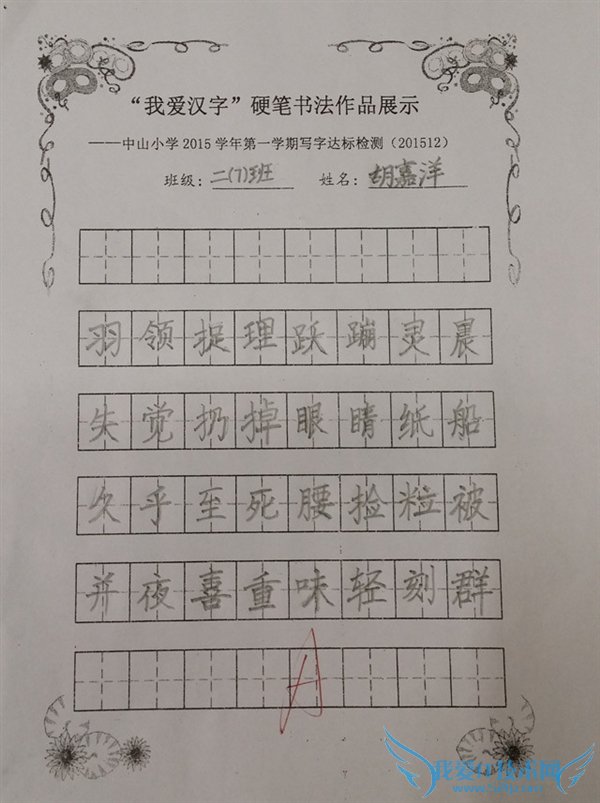 “我爱汉字”硬笔书法作品展示
——中山小学2015学年第一学期写字达标检测（201512）
班级：二(7)班 姓名：胡嘉洋
羽领捉理跃蹦灵晨
失觉扔掉眼睛纸船
久乎至死腰捡粒被
并夜喜重味轻刻群
A